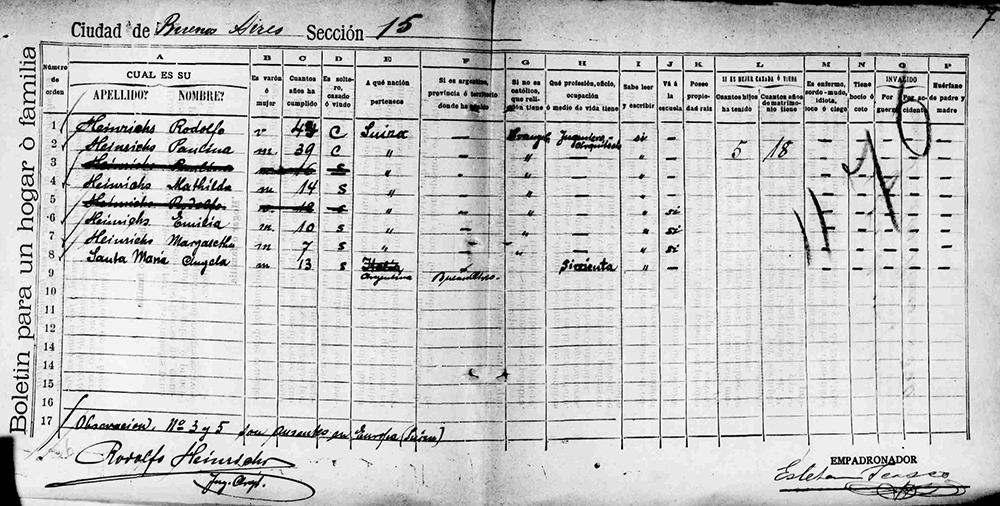 7
Ciudad de Buenos Aires Sección 15
Boletin para un hogar ò familia
Número de orden
A
CUAL ES SU
APELLIDO? NOMBRE?
B
Es varón ó mujer
C
Cuantos años ha cumplido
D
Es soltero, casado ó viudo
E
A qué nación pertenece
F
Si es argentino, provincia ó territorio donde ha nacido
G
Si no es católico, que religión tiene
H
Qué profesión, oficio, ocupación ó medio de vida tiene
I
Sabe leer y escribir
J
Vá á la escuela
K
Posee propiedad raíz
L
SI ES MUJER CASADA Ó VIUDA
Cuantos hijos ha tenido
Cuantos años de matrimonio tiene
M
Es enfermo, sordo-mudo, idiota, loco ó ciego
N
Tiene bocio ó coto
O
INVALIDO
Por guerra
Por accidente
P
Huérfano de padre y madre
1 Heinrichs Rodolfo v C Suiza — si — — — — —
2 Heinrichs Paulina m 39 C " — " — " — 5 18 — — — —
3 Heinrichs m 16 S " — " — " — — — — —
4 Heinrichs Mathilda m 14 s " — " — " — — — — —
5 Heinrichs Rodolfo v 12 s " — " — " si — — — —
6 Heinrichs Emilia m 10 s " — " — " si — — — —
7 Heinrichs Margaretha m 7 s " — " — " si — — — —
8 Santa Maria Angela m 13 s Italia Argentina Buenos Aires Sirvienta " — — — — —
9
10
11
12
13
14
15
16
17
Observacion. Nº 3 y 5 son ausentes en Europa (Suiza)
Rodolfo Heinrichs
Ing. Arqt.
EMPADRONADOR
Esteban